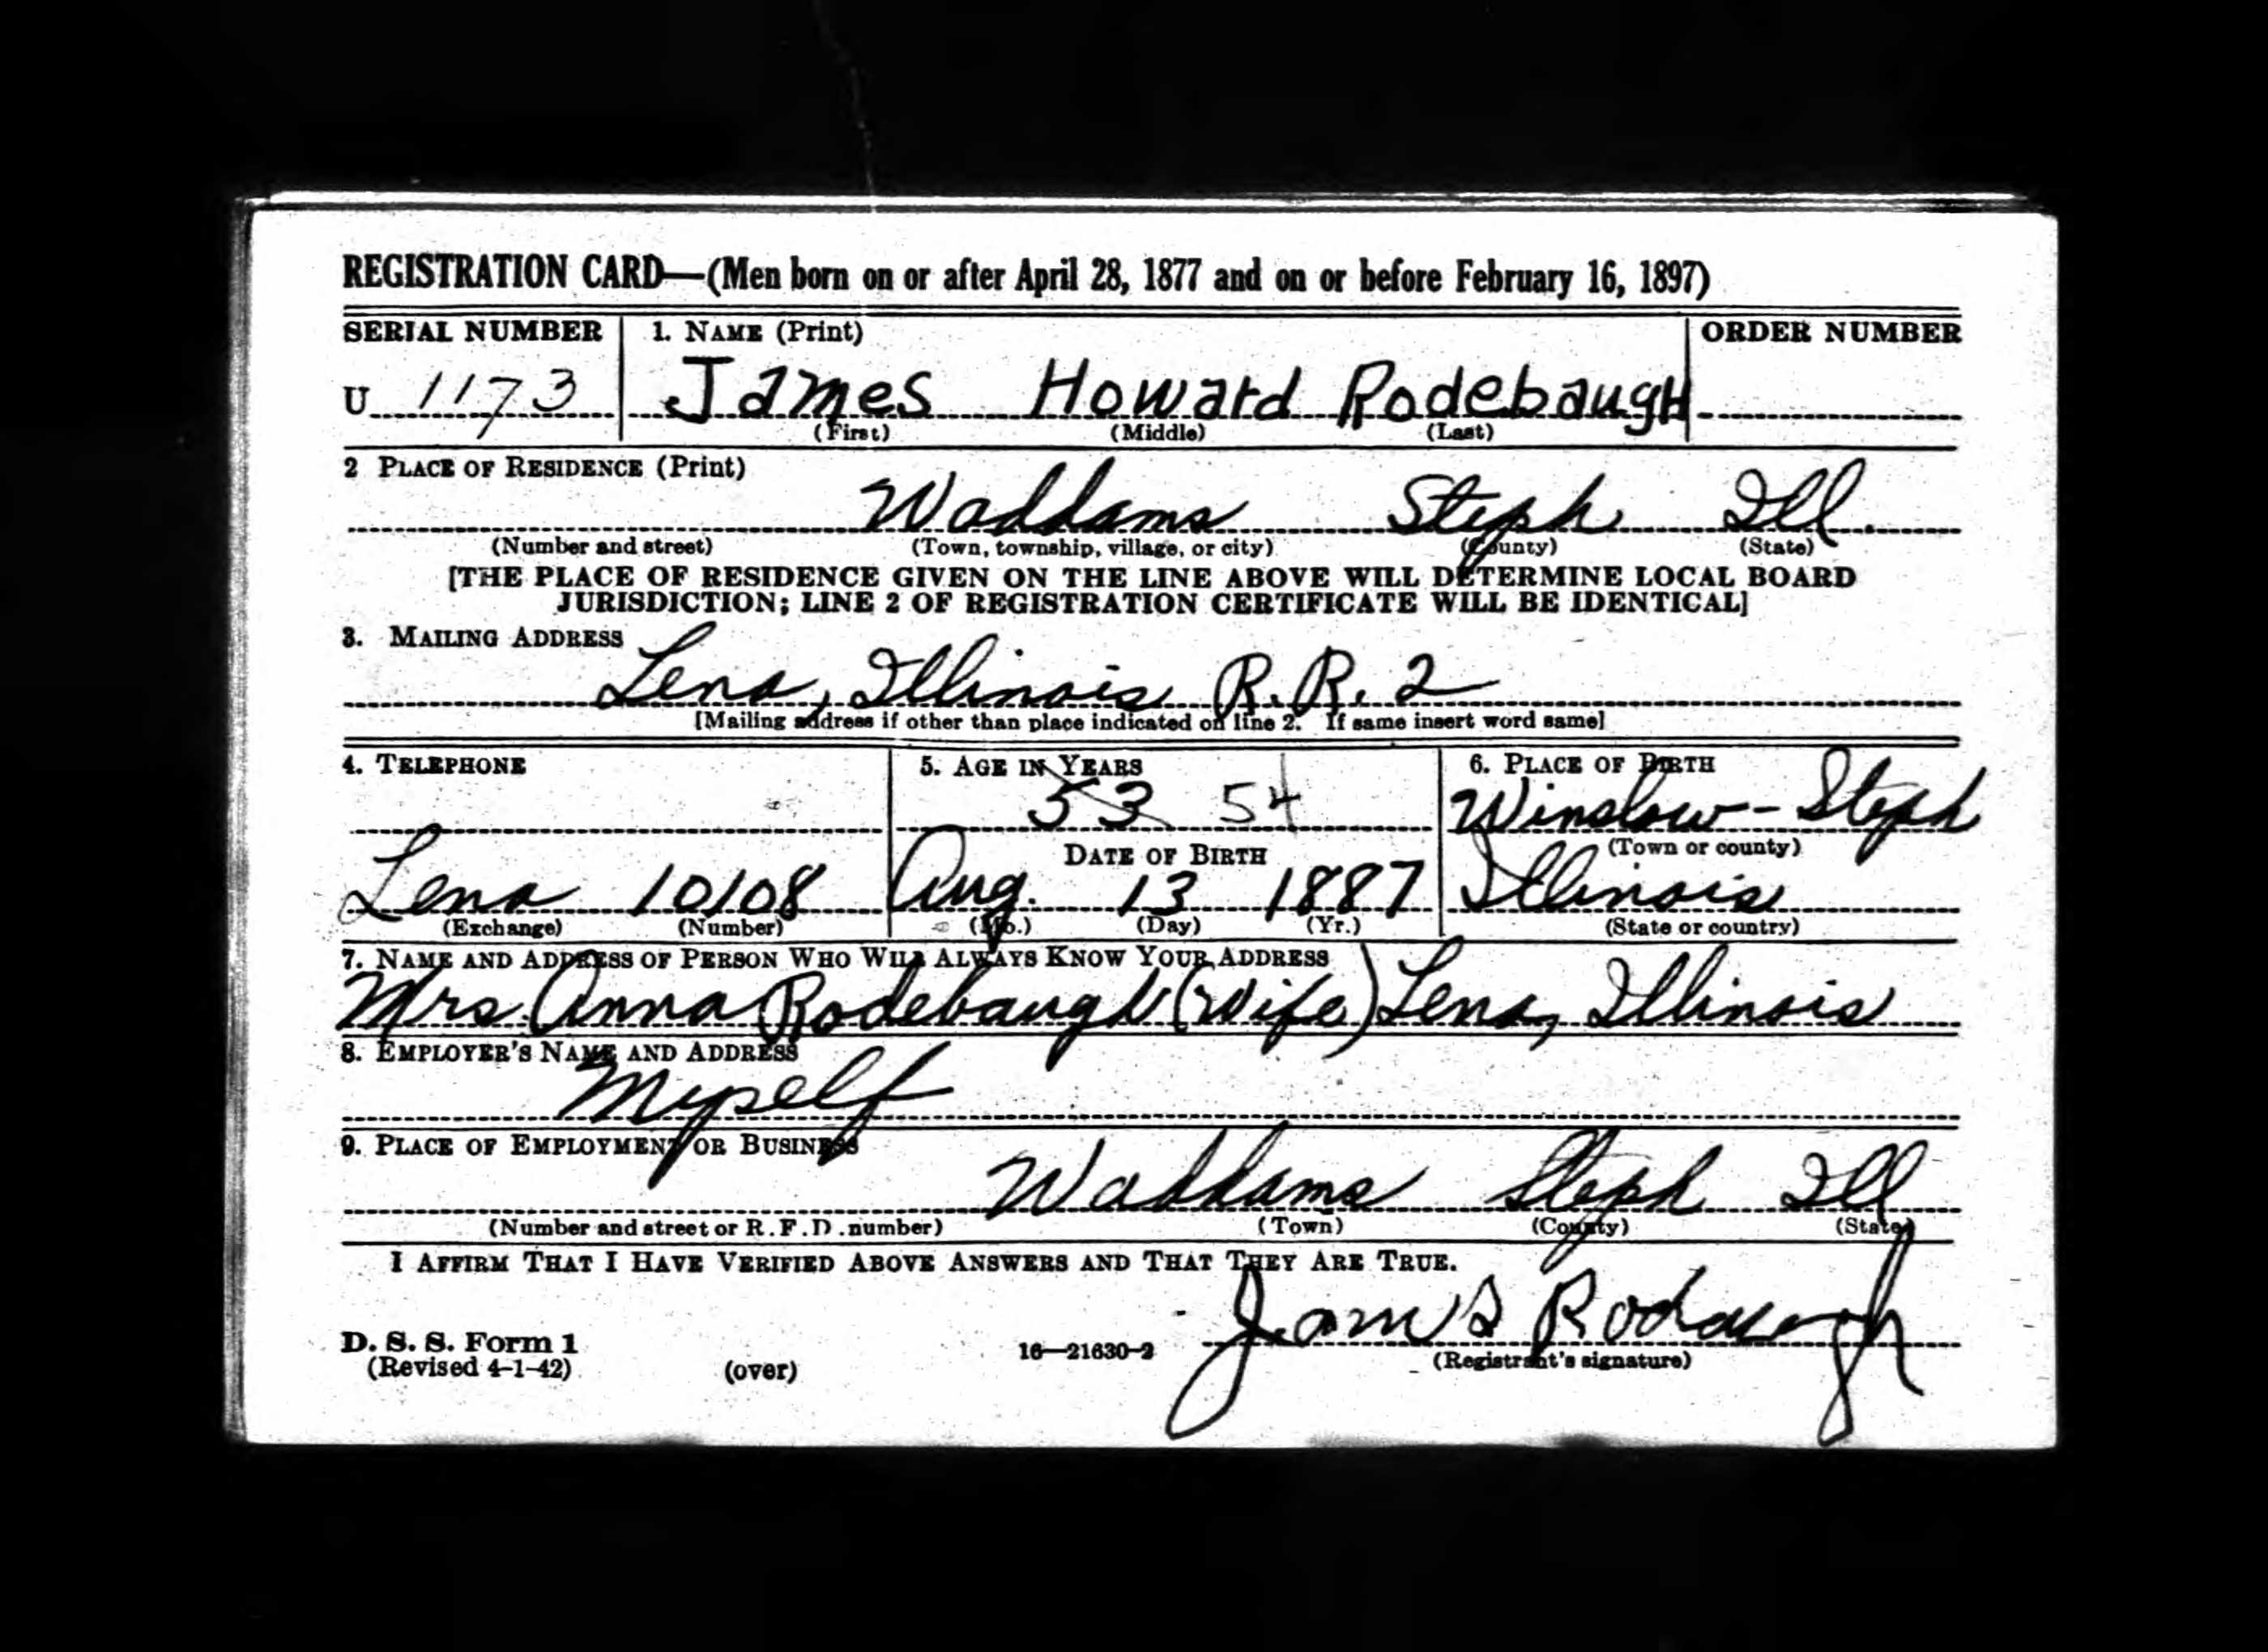 REGISTRATION CARD—(Men born on or after April 28, 1877 and on or before February 16, 1897)
SERIAL NUMBER 1. NAME (Print) ORDER NUMBER
U 1173 James Howard Rodebaugh
(First) (Middle) (Last)
2 PLACE OF RESIDENCE (Print)
Waddams Steph Ill.
(Number and street) (Town, township, village, or city) (County) (State)
[THE PLACE OF RESIDENCE GIVEN ON THE LINE ABOVE WILL DETERMINE LOCAL BOARD
JURISDICTION; LINE 2 OF REGISTRATION CERTIFICATE WILL BE IDENTICAL]
3. MAILING ADDRESS
Lena, Illinois R.R. 2
[Mailing address if other than place indicated on line 2. If same insert word same]
4. TELEPHONE 5. AGE IN YEARS 6. PLACE OF BIRTH
53 54 Winslow - Steph
DATE OF BIRTH (Town or county)
Lena 10108 Aug. 13 1887 Illinois
(Exchange) (Number) (Mo.) (Day) (Yr.) (State or country)
7. NAME AND ADDRESS OF PERSON WHO WILL ALWAYS KNOW YOUR ADDRESS
Mrs. Anna Rodebaugh (Wife) Lena, Illinois
8. EMPLOYER'S NAME AND ADDRESS
Myself
9. PLACE OF EMPLOYMENT OR BUSINESS
Waddams Steph Ill
(Number and street or R.F.D. number) (Town) (County) (State)
I AFFIRM THAT I HAVE VERIFIED ABOVE ANSWERS AND THAT THEY ARE TRUE.
James
D. S. S. Form 1
(Revised 4-1-42) (over) 16—21630-2 (Registrant's signature)